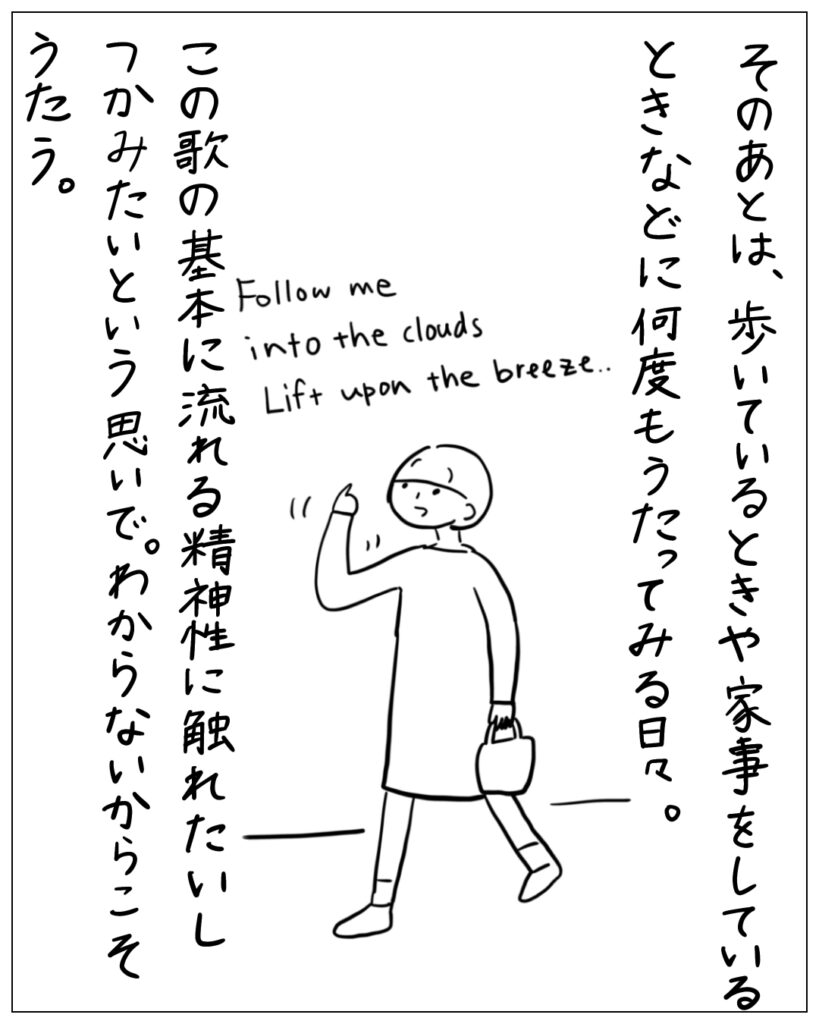 そのあとは、歩いているときや家事をしている
ときなどに何度もうたってみる日々。
Follow me
into the clouds
Lift upon the breeze..
この歌の基本に流れる精神性に触れたいし
つかみたいという思いで。わからないからこそ
うたう。